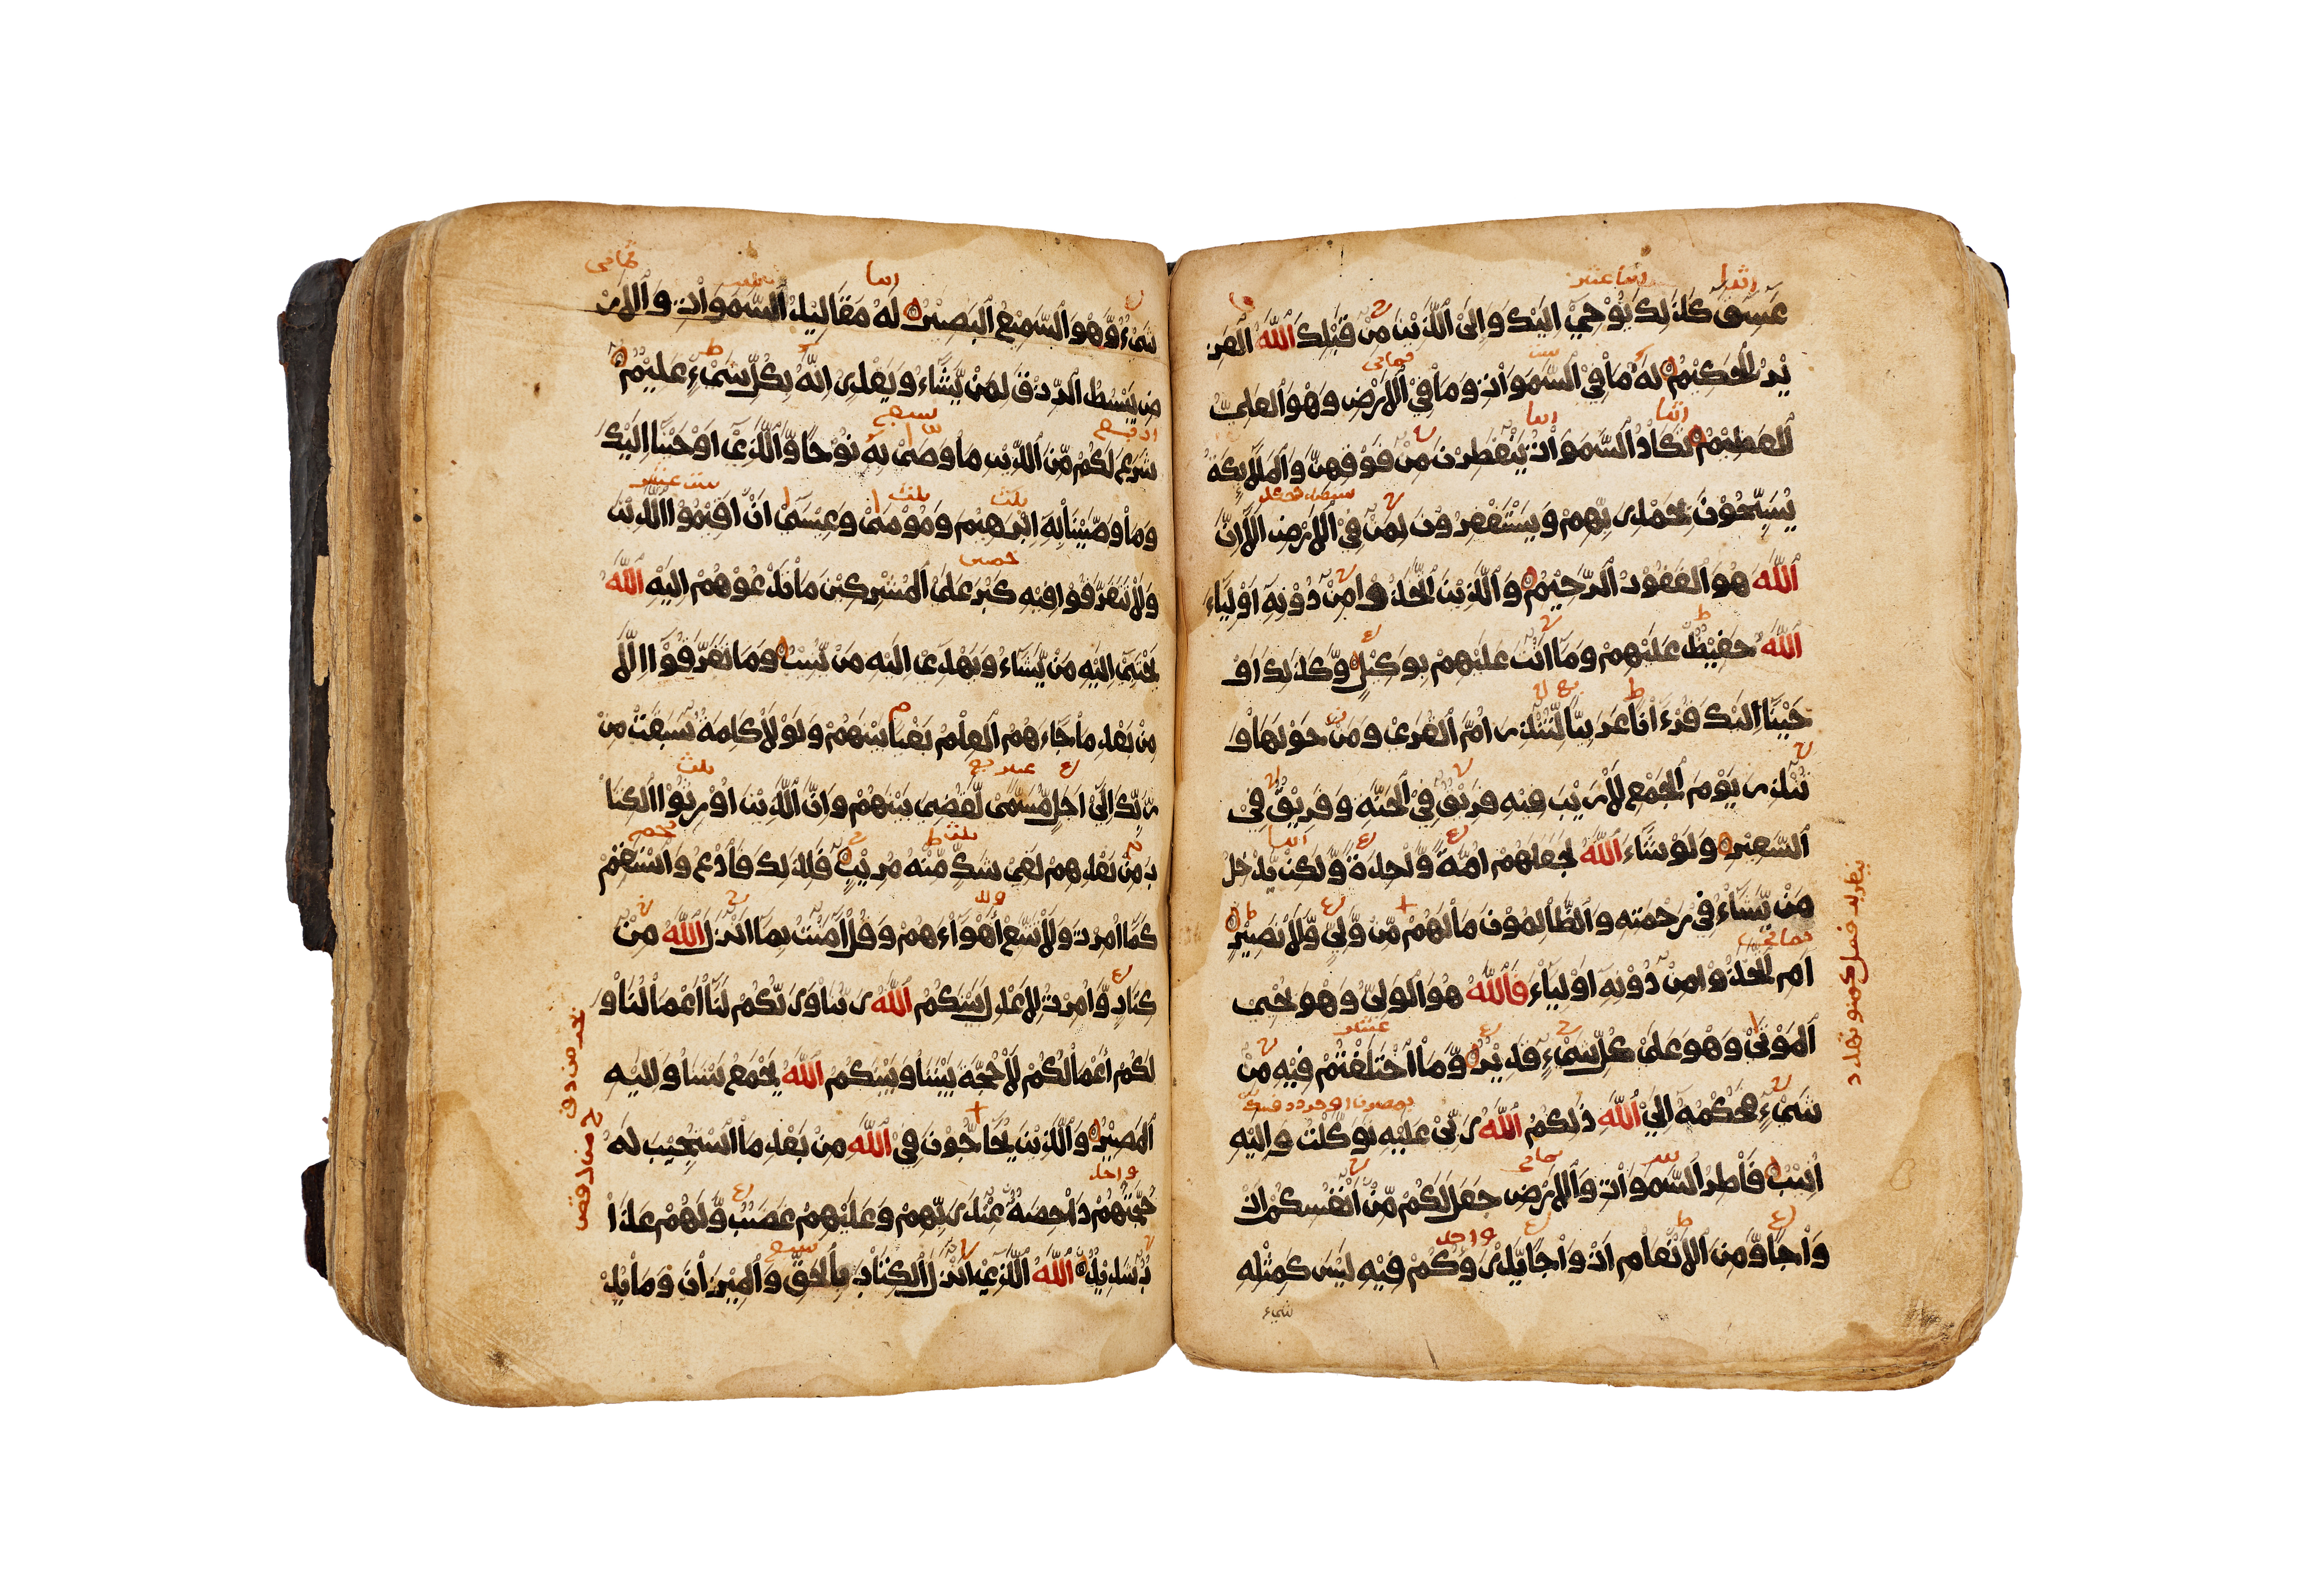 عَسِقَ كَذَٰلِكَ يُوْحِيْٓ اِلَيْكَ وَاِلَى ٱلَّذِيْنَ مِنْ قَبْلِكَ ٱللّٰهُ ٱلْعَزِ
يْزُ ٱلْحَكِيْمُ لَهُ مَاْ فِيْ ٱلسَّمَوَاْتِ وَمَاْ فِيْ ٱلْاَرْضِ وَهْوَ ٱلْعَلِيُّ
ٱلْعَظِيْمُ تَكَاْدُ ٱلسَّمَوَاْتُ يَتَفَطَّرْنَ مِنْ فَوْقِهِنَّ وَٱلْمَلَآئِكَةُ
يُسَبِّحُوْنَ بِحَمْدِ رَبِّهِمْ وَيَسْتَغْفِرُوْنَ لِمَنْ فِيْ ٱلْاَرْضِ اَلَآ اِنَّ
ٱللّٰهَ هُوَ ٱلْغَفُوْرُ ٱلرَّحِيْمُ وَٱلَّذِيْنَ ٱتَّخَذُوْا مِنْ دُوْنِهِٓ اَوْلِيَآءَ
ٱللّٰهُ حَفِيْظٌ عَلَيْهِمْ وَمَآ اَنْتَ عَلَيْهِمْ بِوَكِيْلٍ وَّكَذَٰلِكَ اَوْ
حَيْنَآ اِلَيْكَ قُرْءَاْنًا عَرَبِيًّا لِّتُنْذِرَ اُمَّ ٱلْقُرَىْ وَمَنْ حَوْلَهَاْ وَ
تُنْذِرَ يَوْمَ ٱلْجَمْعِ لَاْ رَيْبَ فِيْهِ فَرِيْقٌ فِيْ ٱلْجَنَّةِ وَفَرِيْقٌ فِيْ
ٱلسَّعِيْرِ وَلَوْ شَآءَ ٱللّٰهُ لَجَعَلَهُمْ اُمَّةً وَّاْحِدَةً وَّلَٰكِنْ يُّدْخِلُ
مَنْ يَّشَآءُ فِيْ رَحْمَتِهِ وَٱلظَّاْلِمُوْنَ مَاْ لَهُمْ مِّنْ وَّلِيٍّ وَّلَاْ نَصِيْرٍ
اَمِ ٱتَّخَذُوْا مِنْ دُوْنِهِٓ اَوْلِيَآءَ فَٱللّٰهُ هُوَ ٱلْوَلِيُّ وَهْوَ يُحْيِ
ٱلْمَوْتَىْ وَهْوَ عَلَىْ كُلِّ شَيْءٍ قَدِيْرٌ وَّمَاْ ٱخْتَلَفْتُمْ فِيْهِ مِنْ
شَيْءٍ فَحُكْمُهُٓ اِلَىْ ٱللّٰهِ ذَٰلِكُمُ ٱللّٰهُ رَبِّيْ عَلَيْهِ تَوَكَّلْتُ وَاِلَيْهِ
اُنِيْبُ فَاْطِرُ ٱلسَّمَوَاْتِ وَٱلْاَرْضِ جَعَلَ لَكُمْ مِّنْ اَنْفُسِكُمْ اَزْ
وَاْجًا وَّمِنَ ٱلْاَنْعَاْمِ اَزْوَاْجًا يَّذْرَؤُكُمْ فِيْهِ لَيْسَ كَمِثْلِهِ
شيء
شَيْءٌ وَّهْوَ ٱلسَّمِيْعُ ٱلْبَصِيْرُ لَهُ مَقَاْلِيْدُ ٱلسَّمَوَاْتِ وَٱلْاَرْ
ضِ يَبْسُطُ ٱلرِّزْقَ لِمَنْ يَّشَآءُ وَيَقْدِرُ اِنَّهُ بِكُلِّ شَيْءٍ عَلِيْمٌ
شَرَعَ لَكُمْ مِّنَ ٱلدِّيْنِ مَا وَصَّىْ بِهِ نُوْحًا وَّٱلَّذِيْٓ اَوْحَيْنَآ اِلَيْكَ
وَمَاْ وَصَّيْنَاْ بِهِٓ اِبْرَٰهِيْمَ وَمُوْسَىْ وَعِيْسَىْٓ اَنْ اَقِيْمُوْا ٱلدِّيْنَ
وَلَاْ تَتَفَرَّقُوْا فِيْهِ كَبُرَ عَلَىْ ٱلْمُشْرِكِيْنَ مَاْ تَدْعُوْهُمْ اِلَيْهِ ٱللّٰهُ
يَجْتَبِيْٓ اِلَيْهِ مَنْ يَّشَآءُ وَيَهْدِيْٓ اِلَيْهِ مَنْ يُّنِيْبُ وَمَا تَفَرَّقُوْٓا اِلَّا
مِنْ بَعْدِ مَاْ جَآءَهُمُ ٱلْعِلْمُ بَغْيًا بَيْنَهُمْ وَلَوْلَاْ كَلِمَةٌ سَبَقَتْ مِنْ
رَّبِّكَ اِلَىْٓ اَجَلٍ مُّسَمًّىْ لَّقُضِيَ بَيْنَهُمْ وَاِنَّ ٱلَّذِيْنَ اُوْرِثُوْا ٱلْكِتَاْ
بَ مِنْ بَعْدِهِمْ لَفِيْ شَكٍّ مِّنْهُ مُرِيْبٍ فَلِذَٰلِكَ فَاْدْعُ وَٱسْتَقِمْ
كَمَآ اُمِرْتَ وَلَاْ تَتَّبِعْ اَهْوَآءَهُمْ وَقُلْ اٰمَنْتُ بِمَآ اَنْزَلَ ٱللّٰهُ مِنْ
كِتَاْبٍ وَّاُمِرْتُ لِاَعْدِلَ بَيْنَكُمُ ٱللّٰهُ رَبُّنَاْ وَرَبُّكُمْ لَنَآ اَعْمَاْلُنَاْ وَ
لَكُمْ اَعْمَاْلُكُمْ لَاْ حُجَّةَ بَيْنَنَاْ وَبَيْنَكُمُ ٱللّٰهُ يَجْمَعُ بَيْنَنَاْ وَاِلَيْهِ
ٱلْمَصِيْرُ وَٱلَّذِيْنَ يُحَآجُّوْنَ فِيْ ٱللّٰهِ مِنْ بَعْدِ مَاْ ٱسْتُجِيْبَ لَهُ
حُجَّتُهُمْ دَاْحِضَةٌ عِنْدَ رَبِّهِمْ وَعَلَيْهِمْ غَضَبٌ وَّلَهُمْ عَذَاْ
بٌ شَدِيْدٌ ٱللّٰهُ ٱلَّذِيْٓ اَنْزَلَ ٱلْكِتَاْبَ بِٱلْحَقِّ وَٱلْمِيْزَاْنَ وَمَا يُدْ